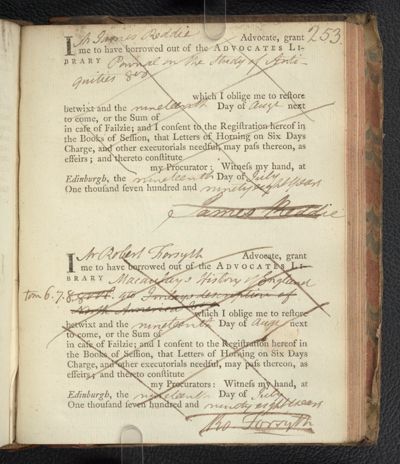 253.
I Mr James Reddie Advocate, grant
me to have borrowed out of the ADVOCATES LI-
BRARY Pownal on the Study of Anti-
quities 8vo
which I oblige me to reſtore
betwixt and the nineteenth Day of Augt next
to come, or the Sum of
in caſe of Failzie; and I conſent to the Regiſtration hereof in
the Books of Seſſion, that Letters of Horning on Six Days
Charge, and other executorials needful, may paſs thereon, as
effeirs; and thereto conſtitute
my Procurator: Witneſs my hand, at
Edinburgh, the nineteenth Day of July
One thouſand ſeven hundred and ninety eight years
James Reddie
I Mr Robert Forsyth Advocate, grant
me to have borrowed out of the ADVOCATES LI-
BRARY Macaulay's History of England
tom 6. 7. 8 4to description of
North America
which I oblige me to reſtore
betwixt and the nineteenth Day of Augt next
to come, or the Sum of
in caſe of Failzie; and I conſent to the Regiſtration hereof in
the Books of Seſſion, that Letters of Horning on Six Days
Charge, and other executorials needful, may paſs thereon, as
effeirs; and thereto conſtitute
my Procurators: Witneſs my hand, at
Edinburgh, the nineteenth Day of July
One thouſand ſeven hundred and ninety eight years
Ro Forsyth